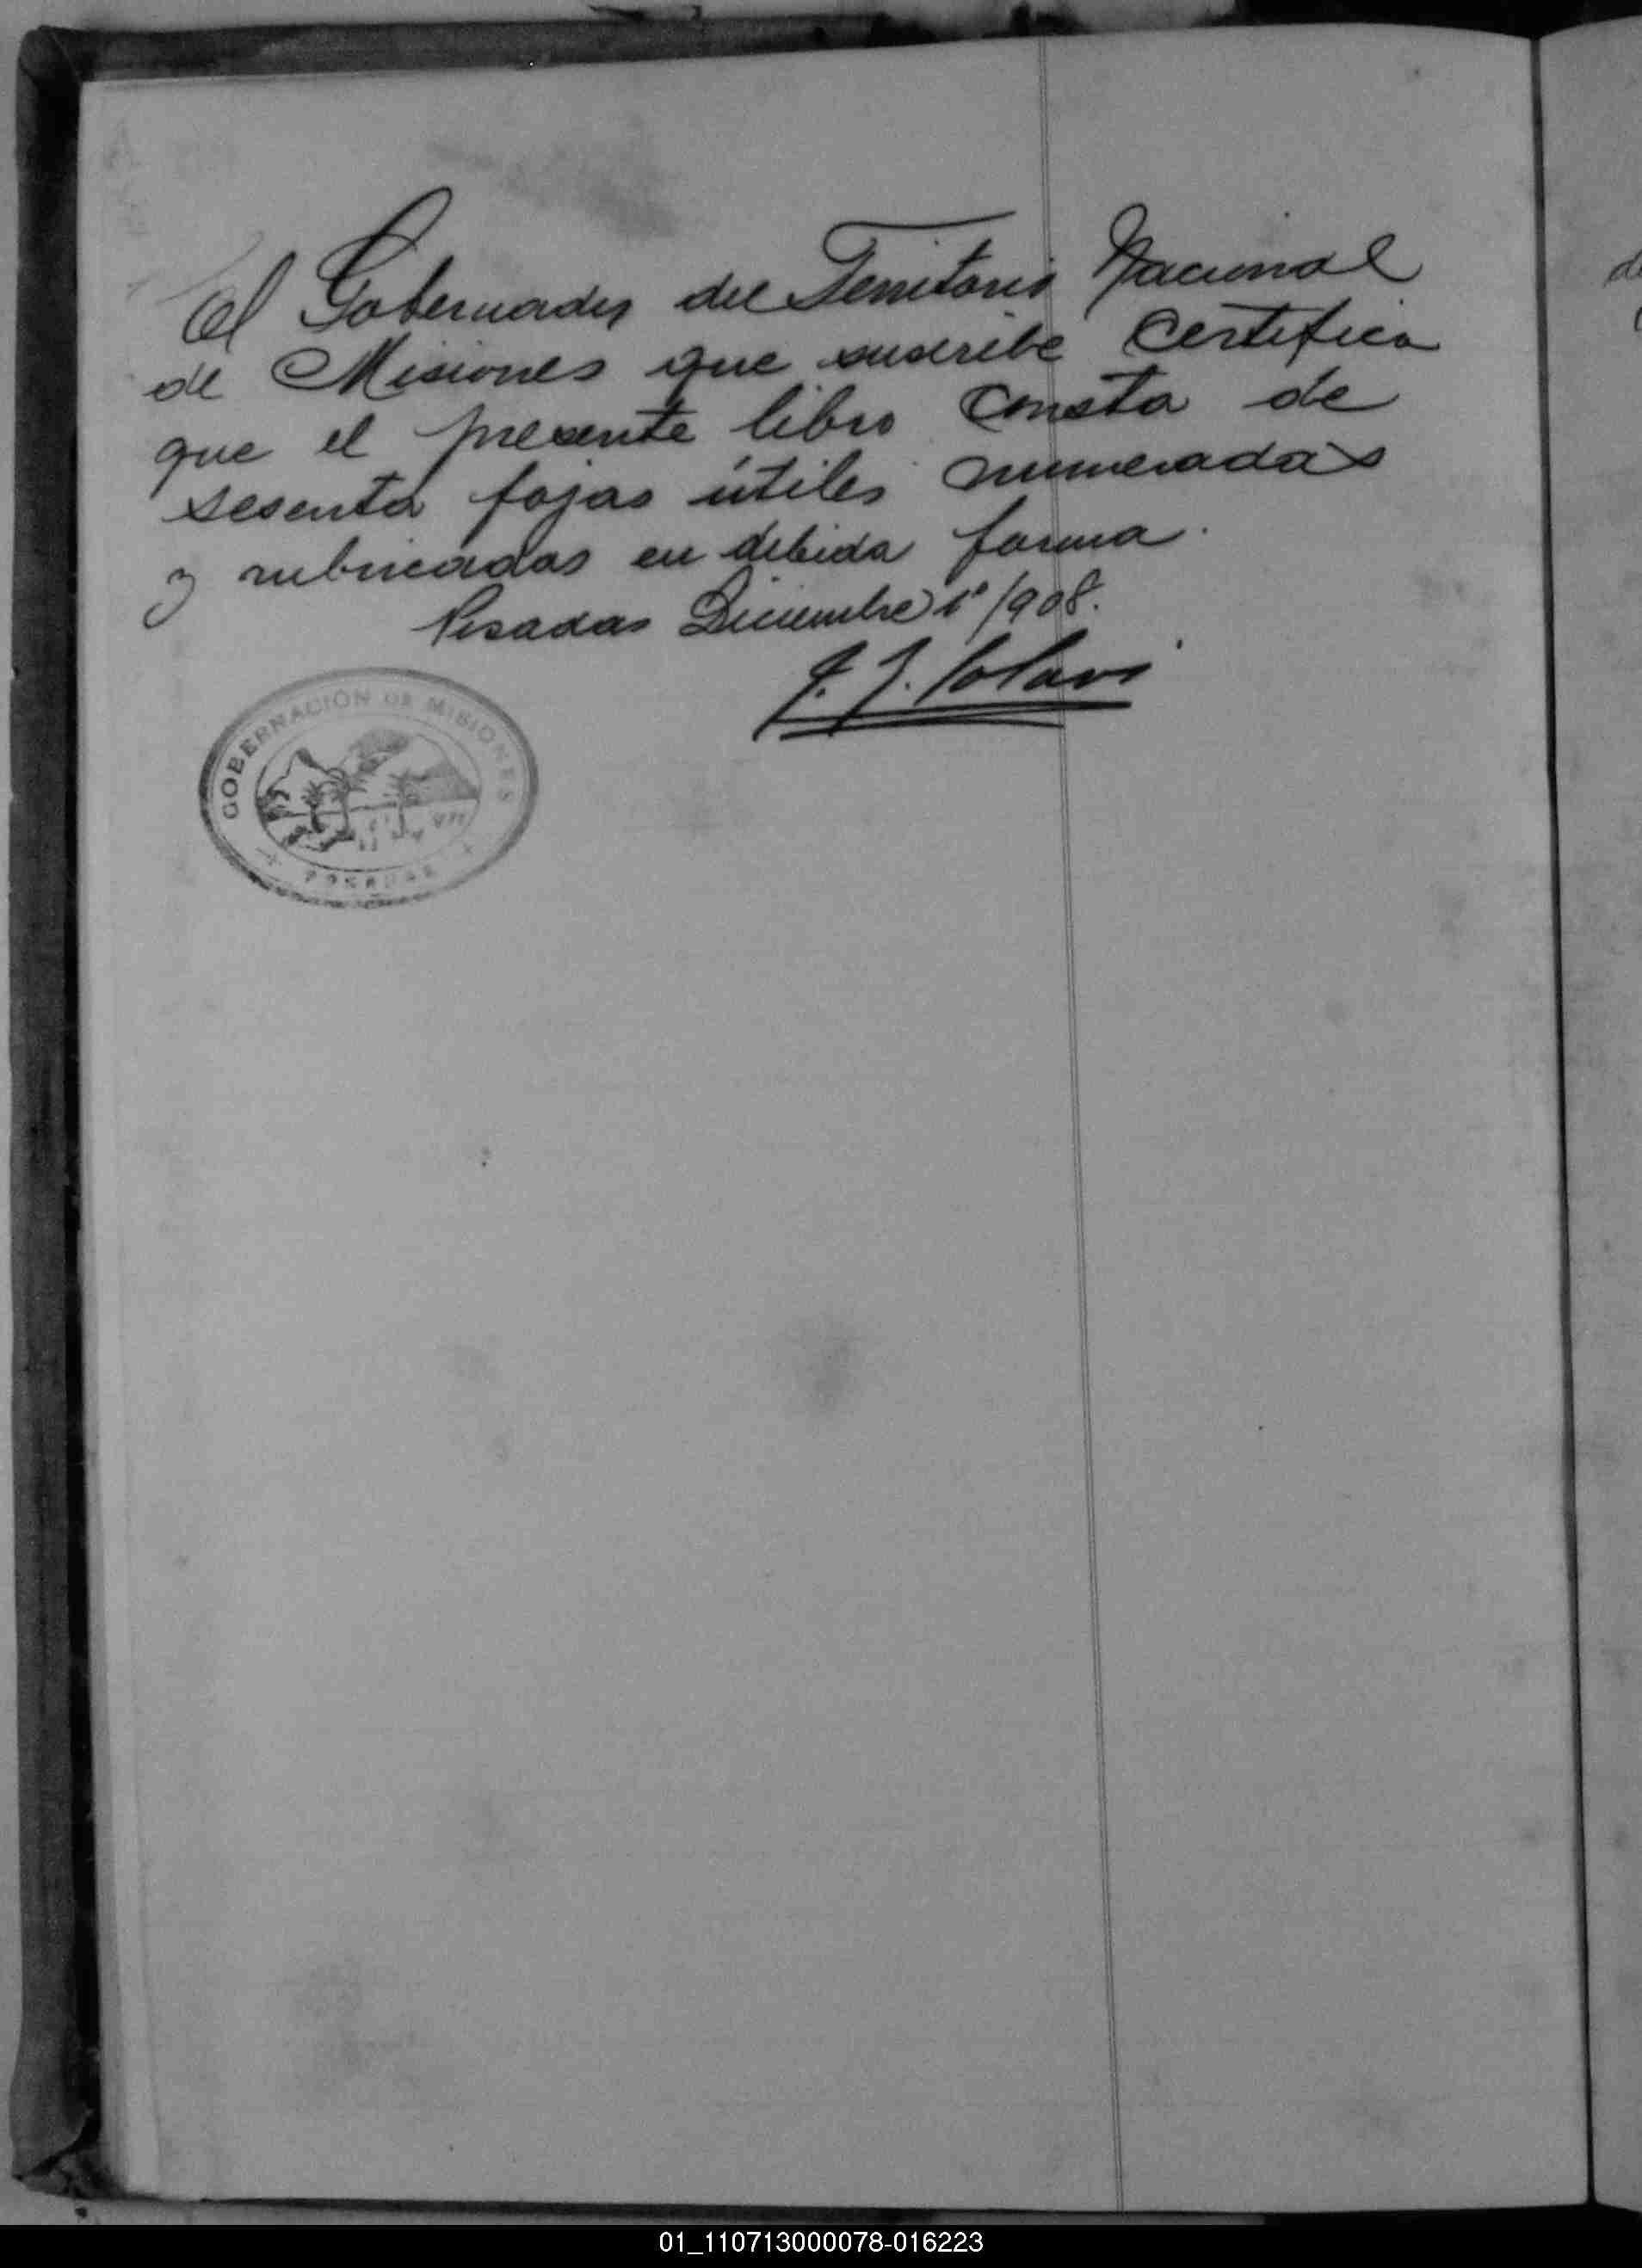 El Gobernador del Territorio Nacional
de Misiones que suscribe Certifica
que el presente libro consta de
sesenta fojas útiles numeradas
y rubricadas en debida forma.
Posadas Diciembre 1º/908.
J. J. Lolavi
GOBERNACION DE MISIONES
POSADAS
01_110713000078-016223